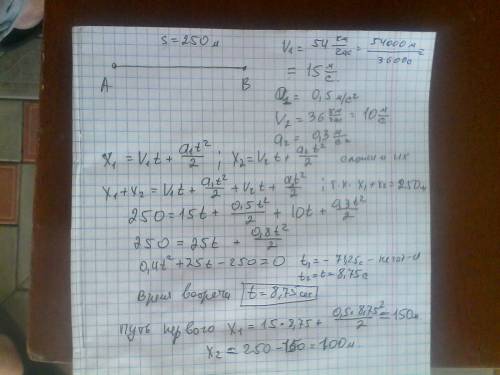 S = 250 м
A B
V₁ = 54 км/час = 54000 м / 3600 с =
= 15 м/с
a₁ = 0,5 м/с²
V₂ = 36 км/час = 10 м/с
a₂ = 0,3 м/с²
x₁ = V₁t + a₁t²/2 ; x₂ = V₂t + a₂t²/2 сложим их
x₁ + x₂ = V₁t + a₁t²/2 + V₂t + a₂t²/2 ; т.к. x₁ + x₂ = 250 м
250 = 15t + 0,5t²/2 + 10t + 0,3t²/2
250 = 25t + 0,8t²/2
0,4t² + 25t - 250 = 0 t₁ = - 71,25с -
t₂ = t = 8,75 с
Время встречи t = 8,75 сек
путь первого x₁ = 15 * 8,75 + 0,5 * 8,75²/2 = 150 м
x₂ = 250 - 150 = 100 м